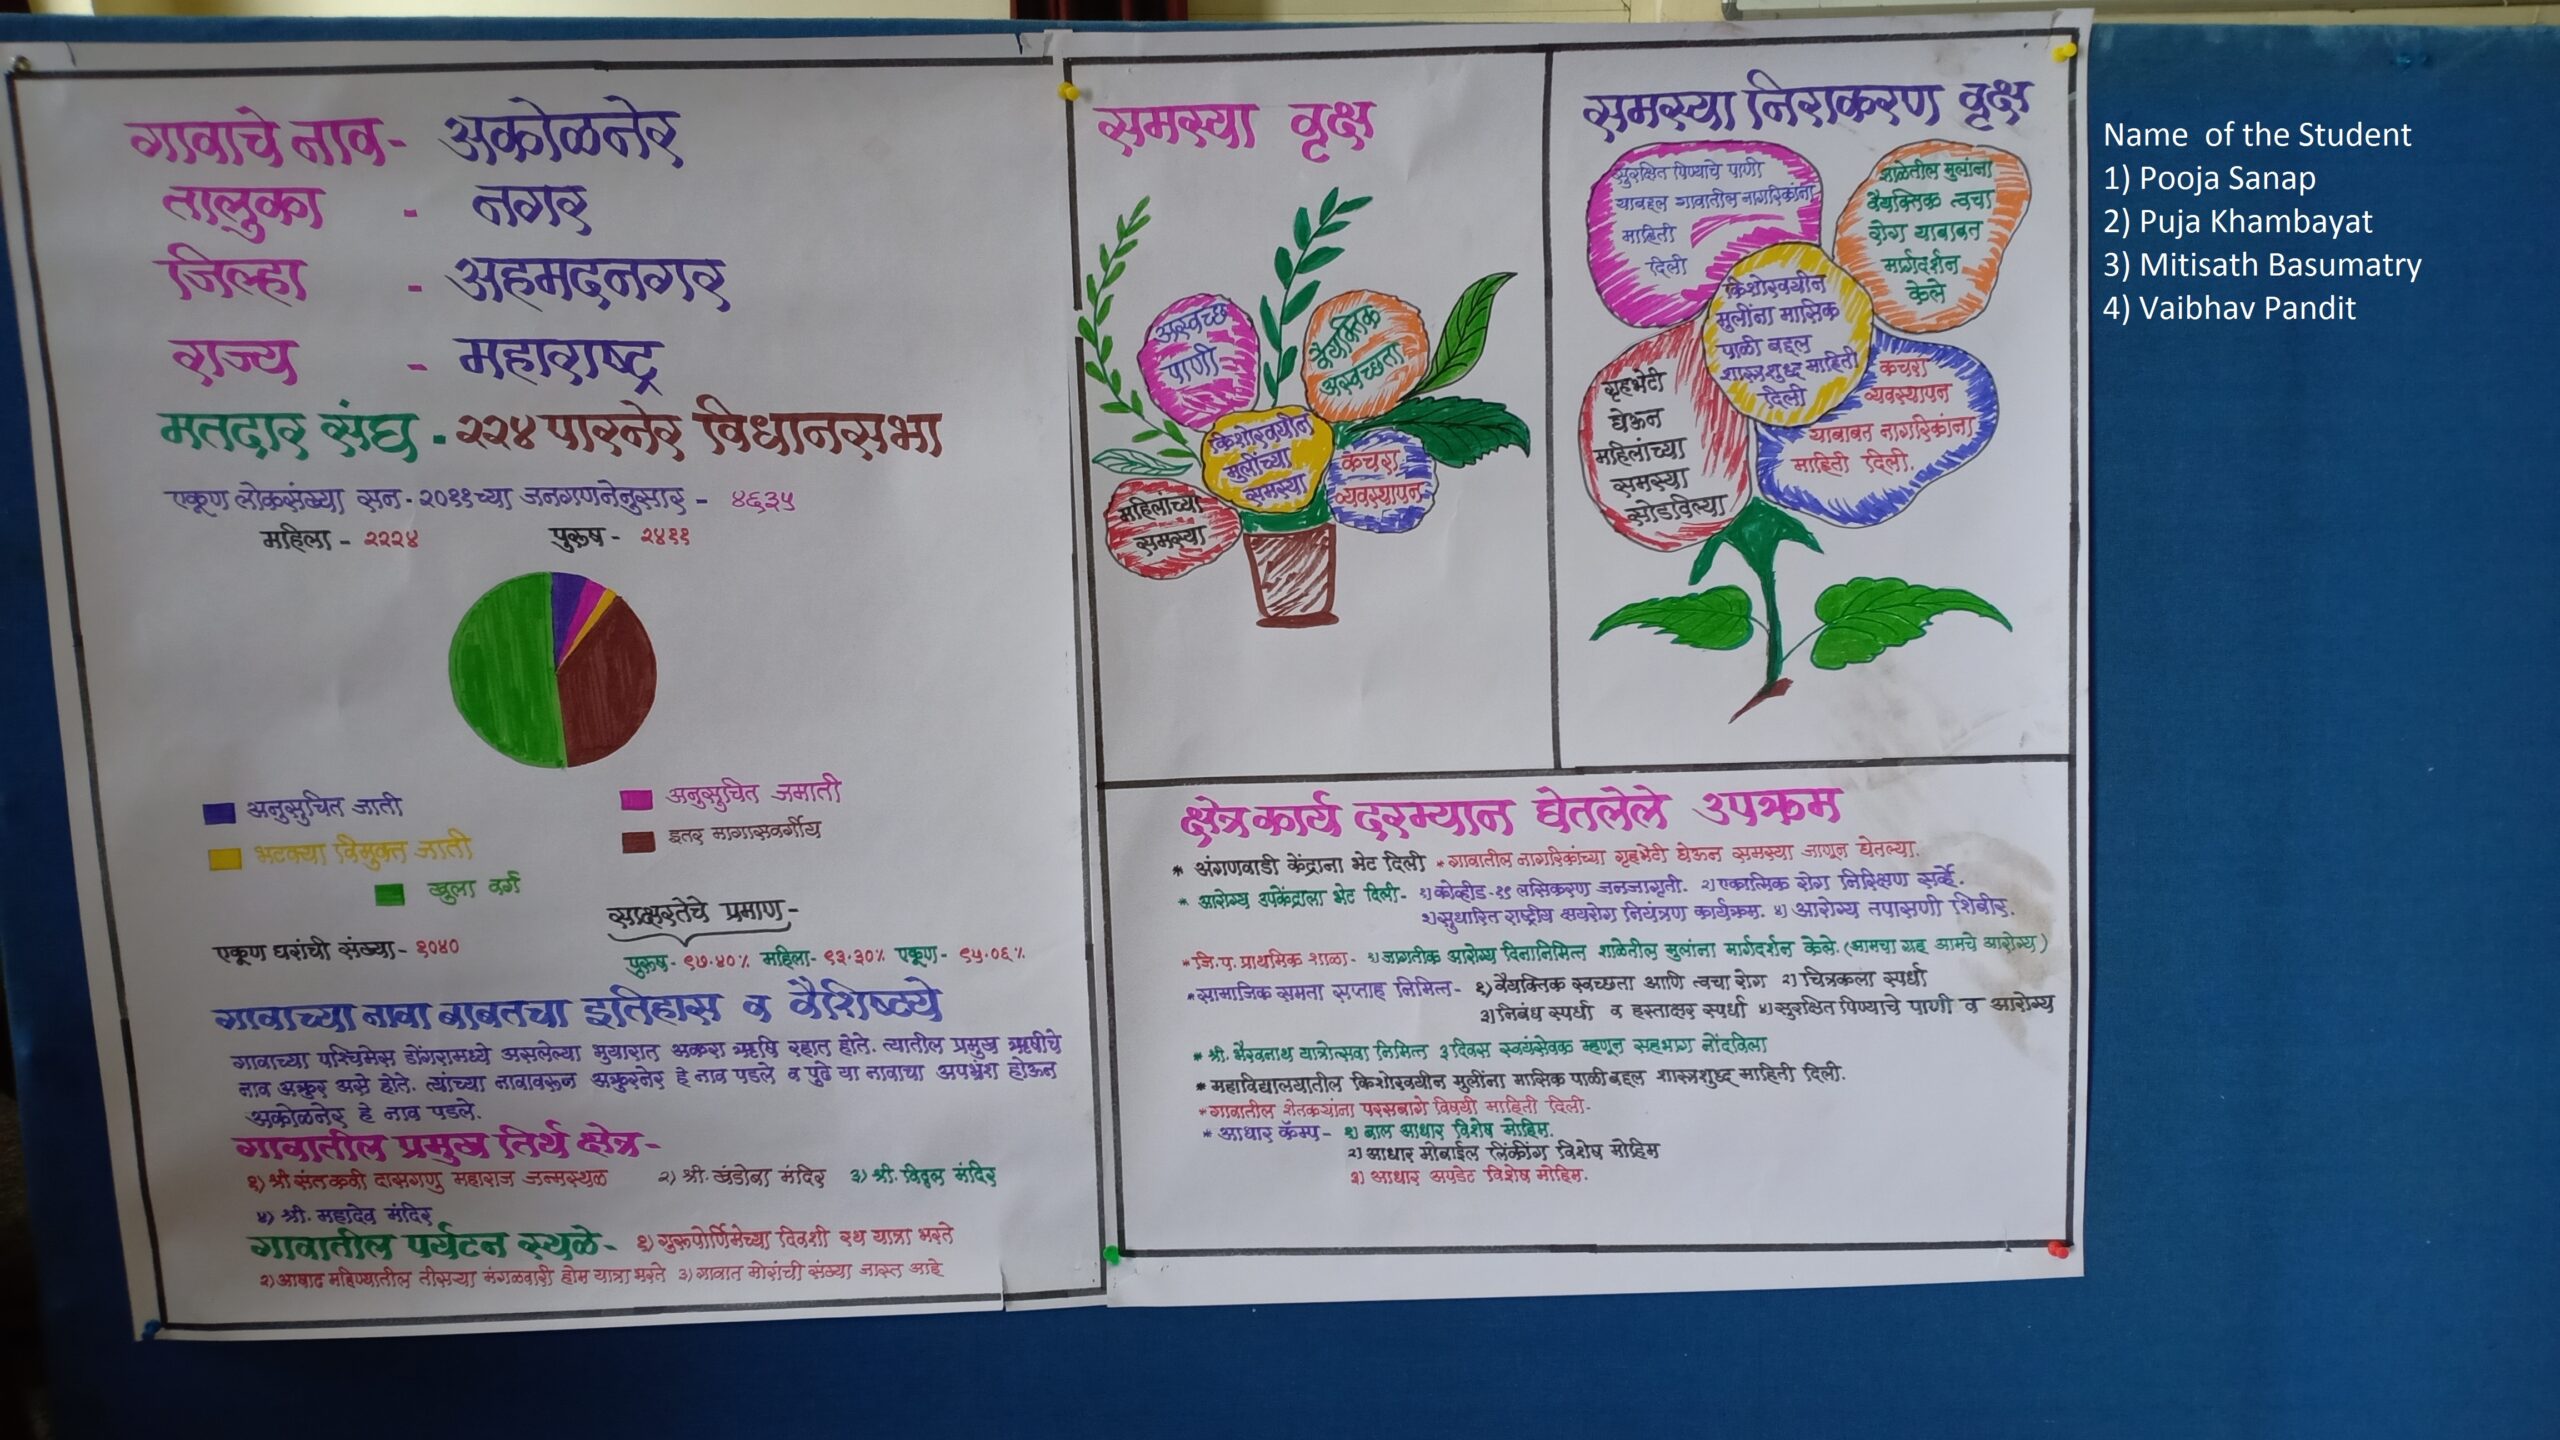 गावाचे नाव - अकोळनेर
तालुका - नगर
जिल्हा - अहमदनगर
राज्य - महाराष्ट्र
मतदार संघ - २२४ पारनेर विधानसभा
एकूण लोकसंख्या सन - २०११ च्या जनगणनेनुसार - ४६३५
महिला - २२२४ पुरूष - २४११
अनुसुचित जाती
अनुसुचित जमाती
भटक्या विमुक्त जाती
इतर मागासवर्गीय
खुला वर्ग
साक्षरतेचे प्रमाण -
एकूण घरांची संख्या - १०४०
पुरूष - ९७.४०% महिला - ९३.३०% एकूण - ९५.०६%
गावाच्या नावा बाबतचा इतिहास व वैशिष्ट्ये
गावाच्या पश्चिमेस डोंगरामध्ये असलेल्या भुयारात अकरा ऋषि रहात होते. त्यातील प्रमुख ऋषीचे
नाव अक्रुर असे होते. त्यांच्या नावावरून अक्रुरनेर हे नाव पडले व पुढे या नावाचा अपभ्रंश होऊन
अकोळनेर हे नाव पडले.
गावातील प्रमुख तिर्थ क्षेत्र -
१) श्री संत कवी दासगणु महाराज जन्मस्थळ २) श्री. खंडोबा मंदिर ३) श्री. विठ्ठल मंदिर
४) श्री. महादेव मंदिर
गावातील पर्यटन स्थळे - १) गुरूपोर्णिमेच्या दिवशी रथ यात्रा भरते
२) आषाढ महिण्यातील तीसऱ्या मंगळवारी होम यात्रा भरते ३) गावात मोरांची संख्या जास्त आहे
समस्या वृक्ष
अस्वच्छ
पाणी
वैयक्तिक
अस्वच्छता
किशोरवयीन
मुलींच्या
समस्या
महिलांच्या
समस्या
कचरा
व्यवस्थापन
समस्या निराकरण वृक्ष
सुरक्षित पिण्याचे पाणी
याबद्दल गावातील नागरिकांना
माहिती
दिली
शाळेतील मुलांना
वैयक्तिक त्वचा
रोग याबाबत
मार्गदर्शन
केले
किशोरवयीन
मुलींना मासिक
पाळी बद्दल
शास्त्रशुद्ध माहिती
दिली
गृहभेटी
घेऊन
महिलांच्या
समस्या
सोडविल्या
कचरा
व्यवस्थापन
याबाबत नागरिकांना
माहिती दिली.
क्षेत्रकार्य दरम्यान घेतलेले उपक्रम
* अंगणवाडी केंद्राना भेट दिली * गावातील नागरिकांच्या गृहभेटी घेऊन समस्या जाणून घेतल्या.
* आरोग्य उपकेंद्राला भेट दिली - १) कोव्हीड - १९ लसिकरण जनजागृती. २) एकात्मिक रोग निरिक्षण सर्व्हे.
३) सुधारित राष्ट्रीय क्षयरोग नियंत्रण कार्यक्रम. ४) आरोग्य तपासणी शिबीर.
* जि.प. प्राथमिक शाळा - १) जागतीक आरोग्य दिनानिमित्त शाळेतील मुलांना मार्गदर्शन केले. (आमचा ग्रह आमचे आरोग्य)
* सामाजिक समता सप्ताह निमित्त - १) वैयक्तिक स्वच्छता आणि त्वचा रोग २) चित्रकला स्पर्धा
३) निबंध स्पर्धा व हस्ताक्षर स्पर्धा ४) सुरक्षित पिण्याचे पाणी व आरोग्य
* श्री. भैरवनाथ यात्रोत्सवा निमित्त ३ दिवस स्वयंसेवक म्हणून सहभाग नोंदविला
* महाविद्यालयातील किशोरवयीन मुलींना मासिक पाळी बद्दल शास्त्रशुद्ध माहिती दिली.
* गावातील शेतकऱ्यांना परसबागे विषयी माहिती दिली -
* आधार कॅम्प - १) बाल आधार विशेष मोहिम.
२) आधार मोबाईल लिंकींग विशेष मोहिम
३) आधार अपडेट विशेष मोहिम.
Name of the Student
1) Pooja Sanap
2) Puja Khambayat
3) Mitisath Basumatry
4) Vaibhav Pandit